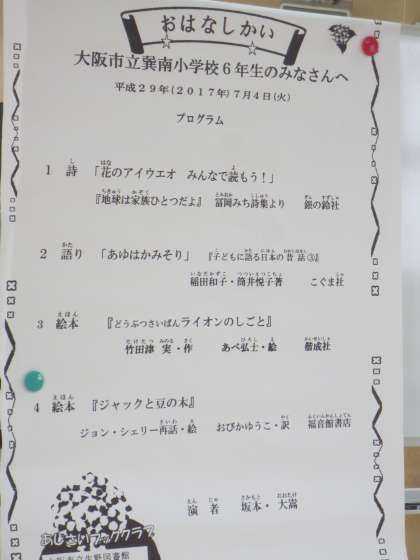 おはなしかい
大阪市立巽南小学校６年生のみなさんへ
平成２９年(２０１７年)７月４日(火)
プログラム
１ 詩 「花のアイウエオ みんなで読もう！」
『地球は家族ひとつだよ』 冨岡みち詩集より 銀の鈴社
２ 語り 「あゆはかみそり」 『子どもに語る日本の昔話③』
稲田和子・筒井悦子著 こぐま社
３ 絵本 『どうぶつさいばんライオンのしごと』
竹田津 実・作 あべ弘士・絵 偕成社
４ 絵本 『ジャックと豆の木』
ジョン・シェリー再話・絵 おびかゆうこ・訳 福音館書店
演者 坂本・大嵩
あじさいブッククラブ
大阪市立生野図書館